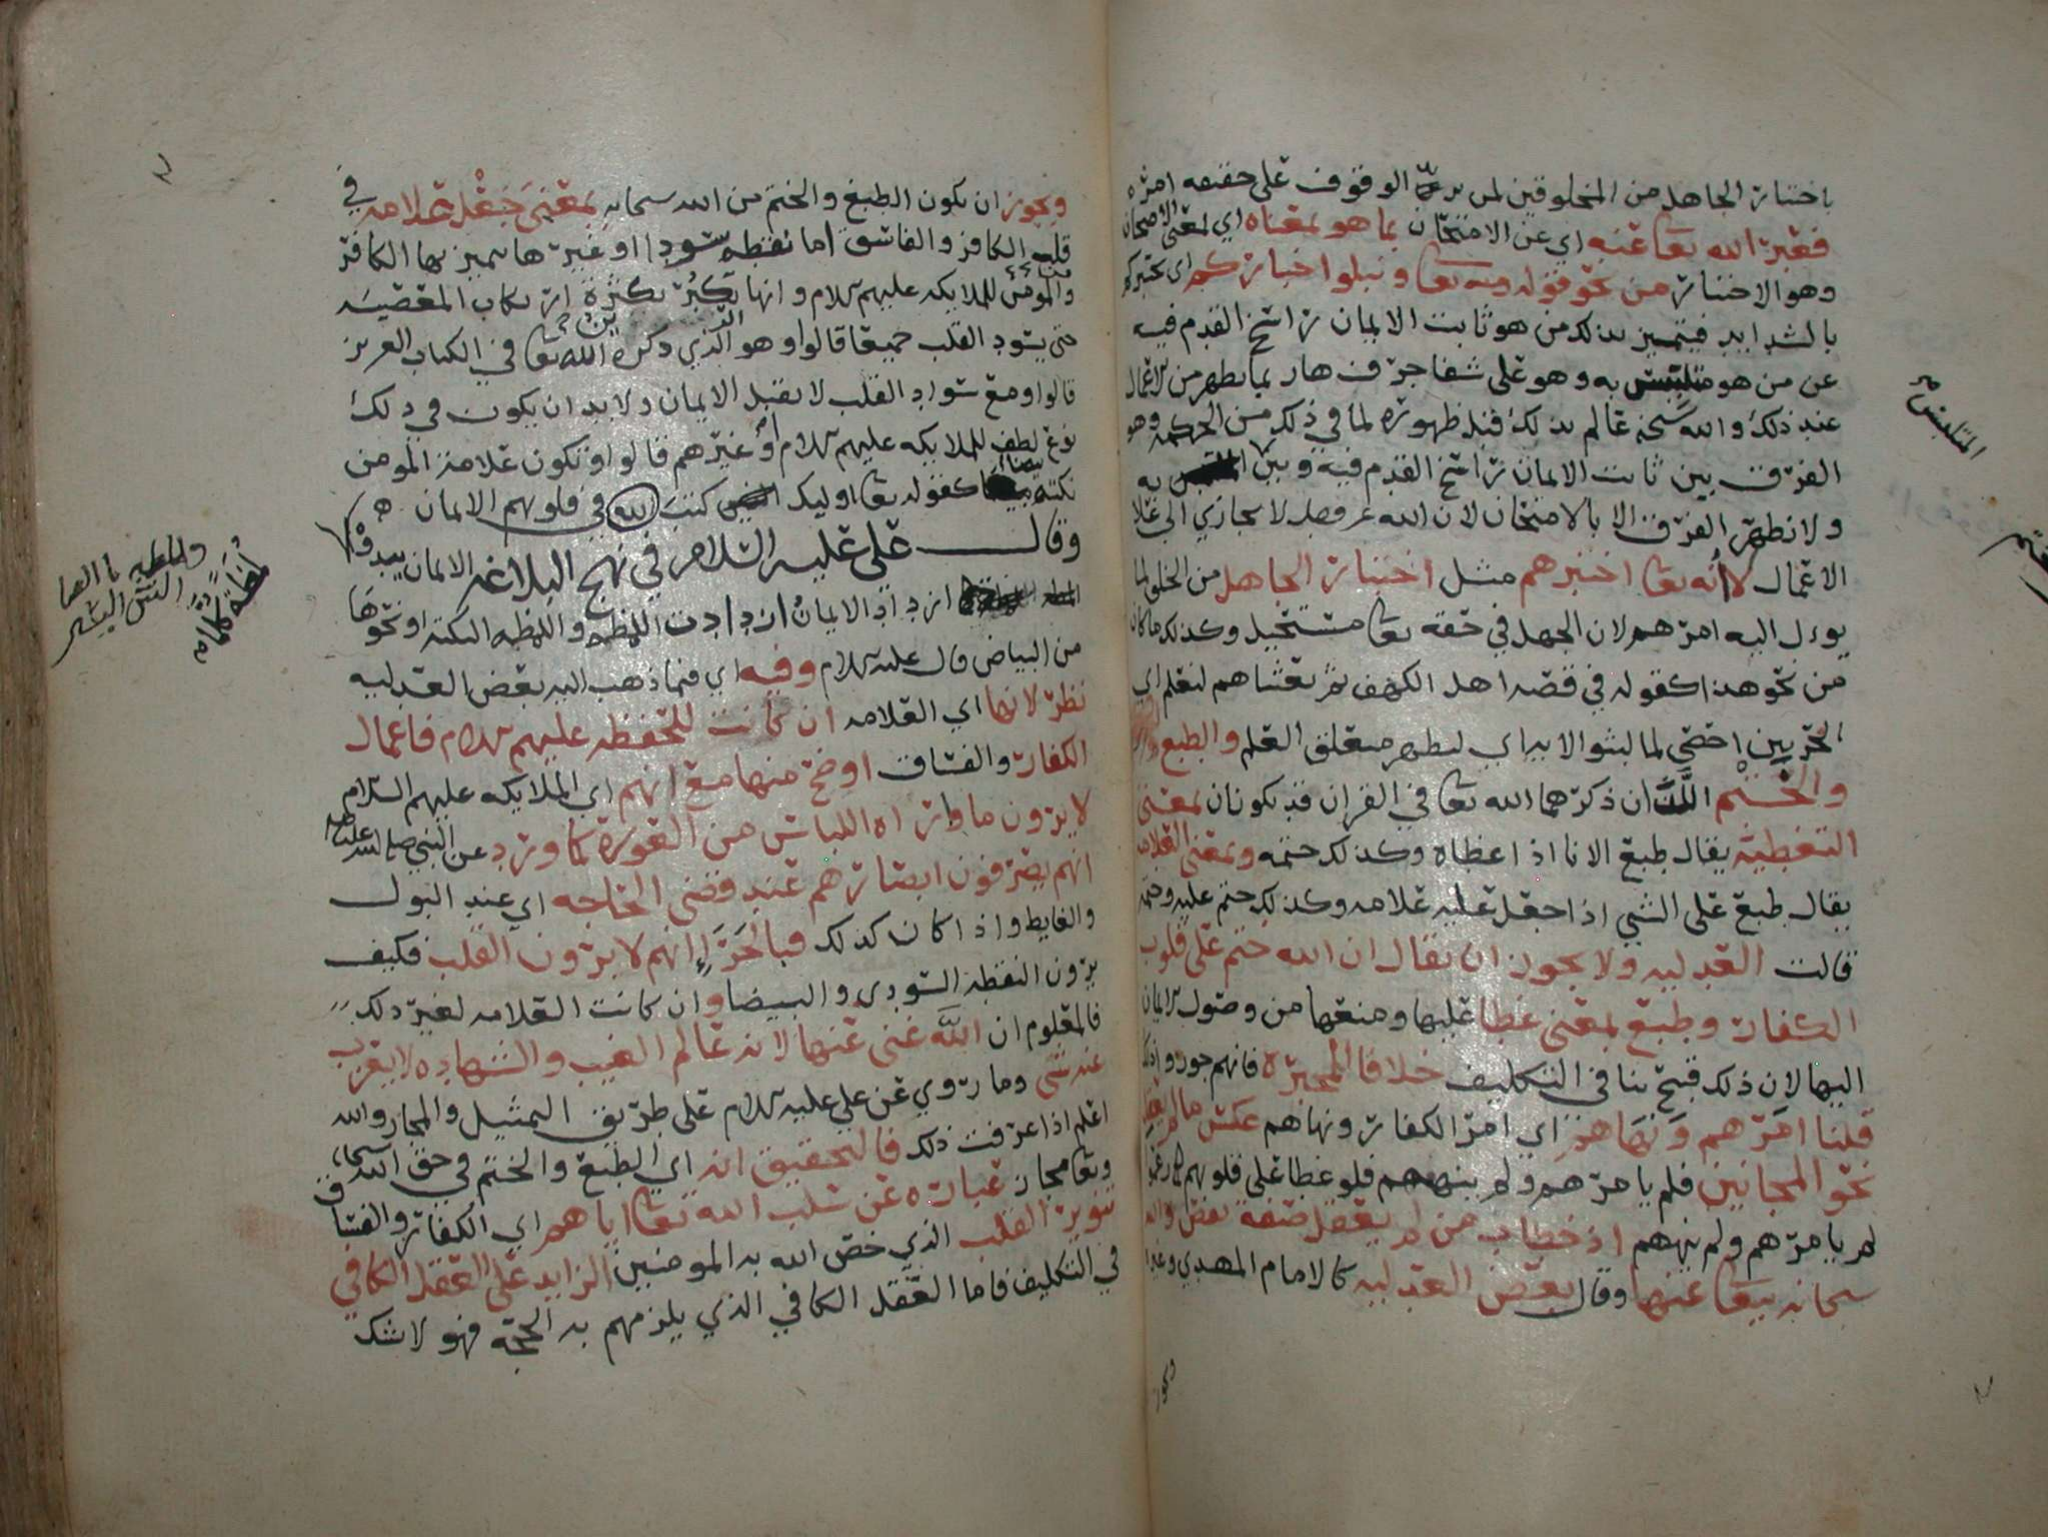 باختبار الجاهل من المخلوقين لمن يريد الوقوف على حقيقه امره
فعبر الله تعا عنه اي عن الامتحان بما هو بمعناه اي بمعنى الامتحان
وهو الاختبار من نحو قوله تعا ونبلوا اخباركم اي نختبركم
بالشدايد فيتميز بذلك من هو ثابت الايمان راسخ القدم فيه
عن من هو متلبس به وهو على شفا جرف هار بما يظهر من الاعمال
عند ذلك والله سبحنه عالم بذلك قبل ظهوره لما في ذلك من الحكمه وهو
الفرق بين ثابت الايمان راسخ القدم فيه وبين به
المتلبس صح
ولا يظهر الفرق الا بالامتحان لان الله عز وجل لا يجازي الا على
الاعمال لا انه تعا اختبرهم مثل اختبار الجاهل من الخلق لما
يوءل اليه امرهم لان الجهل في حقه تعا مستحيل وكذلك ما كان
من نحو هذا كقوله في قصه اهل الكهف ثم بعثناهم لنعلم اي
الحزبين احصى لما لبثوا الابداي ليظهر متعلق العلم والطبع
والختم اللذان ذكرهما الله تعا في القران قد يكونان بمعنى
التغطيه يقال طبع الانا اذا غطاه وكذلك ختمه وبمعنى العلامه
يقال طبع على الشي اذا جعل عليه علامه وكذلك ختم عليه وختمه
قالت العدليه ولا يجوز ان يقال ان الله ختم على قلوب
الكفار وطبع بمعنى غطا عليها ومنعها من وصول الايمان
اليها لان ذلك قبيح ينافي التكليف خلافا للمجبره فانهم جوزوا ذلك
قلنا امرهم ونهاهم اي امر الكفار ونهاهم عكس
نحو المجانين فلم يامرهم ولم ينههم فلو غطا على قلوبهم
لم يامرهم ولم ينههم اذ خطاب من لم يعقل صفه نقص والله
سبحانه يتعا عنها وقال بعض العدليه كالامام المهدي
ويجوز
ويجوز ان يكون الطبع والختم من الله سبحانه بمعنى جعل علامه في
قلب الكافر والفاسق اما نقطه سودا او غيرها يتميز بها الكافر
والمؤمن للملايكه عليهم السلام وانها تكبر بكثره ارتكاب المعصيه
حتى يسود القلب جميعا قالوا وهو الرين الذي ذكره الله تعا في الكتاب العزيز
قالوا ومع سواد القلب لا يقبل الايمان ولا بد ان يكون في ذلك
نوع لطف للملايكه عليهم السلام او غيرهم قالوا وتكون علامة المومن
نكته بيضا كقوله تعا اوليك كتب الله في قلوبهم الايمان
وقال على عليه السلام في نهج البلاغه الايمان يبدو
ازداد الايمان ازدادت اللمظه واللمظه النكته او نحوها
من البياض قال عليه السلام وفيه اي فيما ذهب اليه بعض العدليه
نظر لانها اي العلامه ان كانت للحفظه عليهم السلام فاعمال
الكفار والفساق اوضح منها مع انهم اي الملايكه عليهم السلام
لا يرون ما واراه اللباس من العوره كما ورد عن النبي صلى الله عليه
انهم يصرفون ابصارهم عند قضى الحاجه اي عند البول
والغايط واذا كان كذلك فبالحري انهم لا يرون القلب فكيف
يرون النقطه السودى والبيضا وان كانت العلامه لغير ذلك
فالمعلوم ان الله غنى عنها لانه عالم الغيب والشهاده لا يعزب
عنه شى وما روي عن على عليه السلام على طريق التمثيل والمجاز والله
اعلم اذا عرفت ذلك فالتحقيق انه اي الطبع والختم في حق الله سبحانه
وتعا مجاز عبارة عن سلب الله تعا اياهم اي الكفار والفساق
تنوير القلب الذي خص الله به المومنين الزايد على العقل الكافي
في التكليف فاما العقل الكافي الذي يلزمهم به الحجه فهو لا شك